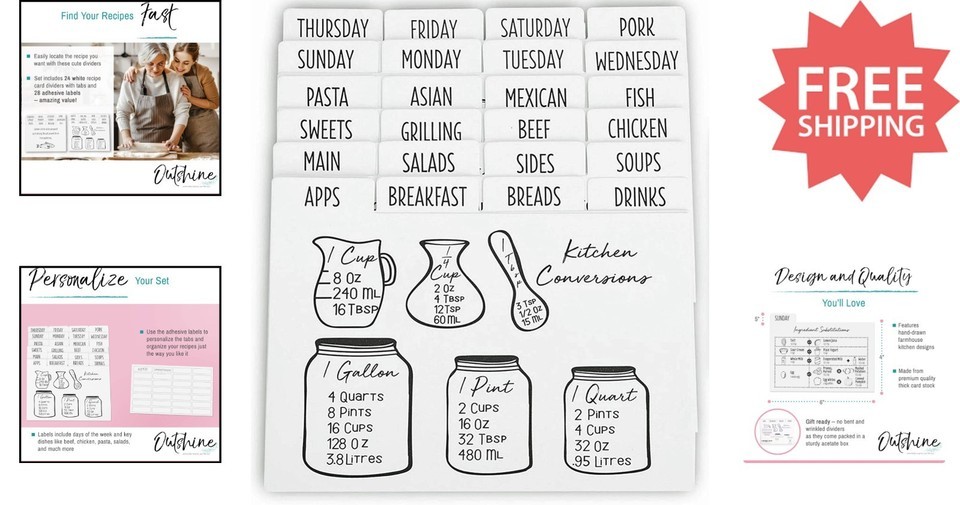 Find Your Recipes Fast
Easily locate the recipe you
want with these cute dividers
Set includes 24 white recipe
card dividers with tabs and
28 adhesive labels
– amazing value!
Outshine
THURSDAY FRIDAY SATURDAY PORK
SUNDAY MONDAY TUESDAY WEDNESDAY
PASTA ASIAN MEXICAN FISH
SWEETS GRILLING BEEF CHICKEN
MAIN SALADS SIDES SOUPS
APPS BREAKFAST BREADS DRINKS
1 Cup
8 OZ
240 ML
16 TBSP
1/4
Cup
2 OZ
4 TBSP
12 TSP
60 ML
1
Tbsp
3 TSP
1/2 OZ
15 ML
Kitchen
Conversions
1 Gallon
4 QUARTS
8 PINTS
16 CUPS
128 OZ
3.8 LITRES
1 Pint
2 CUPS
16 OZ
32 TBSP
480 ML
1 Quart
2 PINTS
4 CUPS
32 OZ
.95 LITRES
FREE
SHIPPING
Personalize Your Set
Use the adhesive labels to
personalize the tabs and
organize your recipes just
the way you like it
THURSDAY FRIDAY SATURDAY PORK
SUNDAY MONDAY TUESDAY WEDNESDAY
PASTA ASIAN MEXICAN FISH
SWEETS GRILLING BEEF CHICKEN
MAIN SALADS SIDES SOUPS
APPS BREAKFAST BREADS DRINKS
Kitchen
Conversions
Labels include days of the week and key
dishes like beef, chicken, pasta, salads,
and much more
Outshine
Design and Quality
You'll Love
SUNDAY
Ingredient Substitutions
Features
hand-drawn
farmhouse
kitchen designs
Made from
premium quality
thick card stock
Gift ready – no bent and
wrinkled dividers
as they come packed in a
sturdy acetate box
Outshine